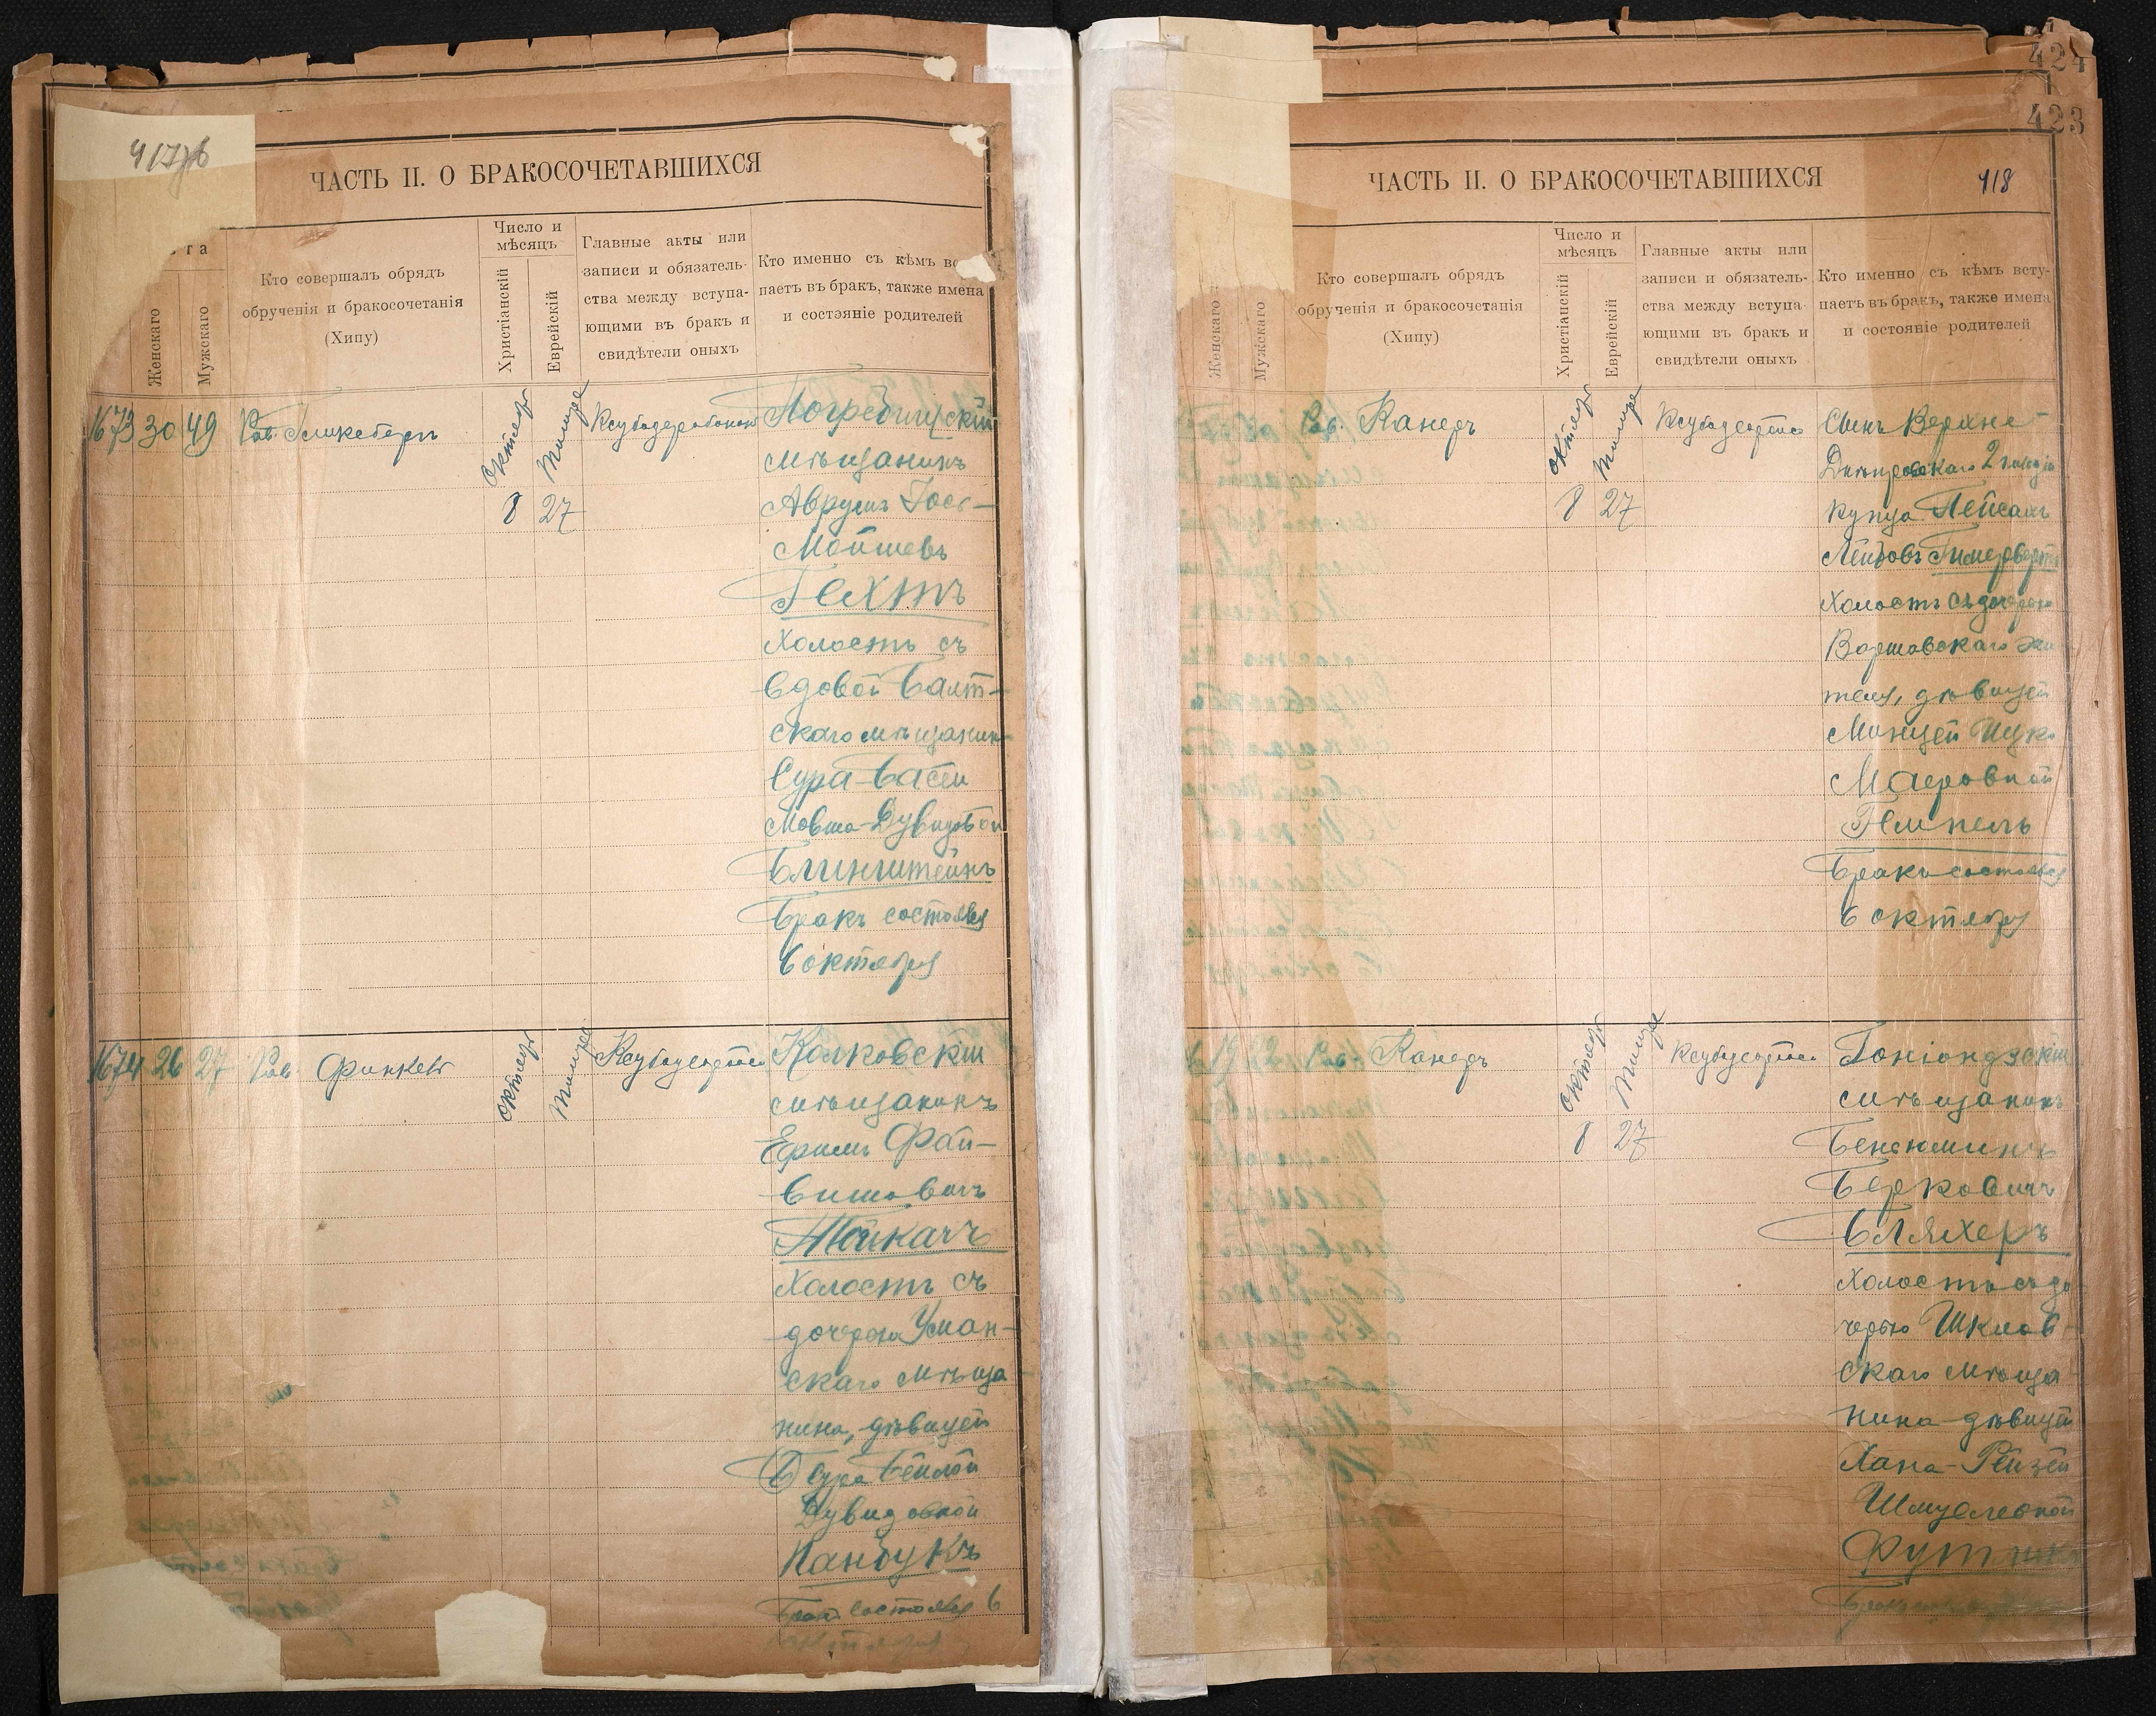 417об
ЧАСТЬ II. О БРАКОСОЧЕТАВШИХСЯ
та
Женскаго
Мужскаго
Кто совершалъ обрядъ
обрученія и бракосочетанія
(Хипу)
Число и
мѣсяцъ
Христіанскій
Еврейскій
Главные акты или
записи и обязатель-
ства между вступа-
ющими въ бракъ и
свидѣтели оныхъ
Кто именно съ кѣмъ вс
паетъ въ бракъ, также имена
и состояніе родителей
1673 30 49 Рав.
октября
Тишре
8 27
Погребищскій
мѣщанинъ
Аврумъ Іось-
Мошевъ
Гехтъ
Холостъ съ
вдовой Балт-
скаго мѣщанин
Сура-Басей
Мовша-Дувидовой
Блинштейнъ
Бракъ состоялся
6 октября
1674 26 27 Рав. Финкель
октября
Тишре
Колковскій
мѣщанинъ
Фай-
вишовичъ
Холостъ съ
дочерью Уман-
скаго мѣща
нина, дѣвицей
Сура Бейлой
Дувидовной
Панбукъ
Бракъ состоялся 6
октября
424
423
ЧАСТЬ II. О БРАКОСОЧЕТАВШИХСЯ
418
Женскаго
Мужскаго
Кто совершалъ обрядъ
обрученія и бракосочетанія
(Хипу)
Число и
мѣсяцъ
Христіанскій
Еврейскій
Главные акты или
записи и обязатель-
ства между вступа-
ющими въ бракъ и
свидѣтели оныхъ
Кто именно съ кѣмъ всту-
паетъ въ бракъ, также имена
и состояніе родителей
Рав. Канеръ
октября
Тишре
8 27
Сынъ Верхне-
Днѣпровскаго 2 гильдіи
купца Пейсахъ
Лейбовъ
Холостъ съ дочерью
Варшавскаго жи
теля, дѣвицей
Маеровной
Гемпель
Бракъ состоялся
6 октября
Рав. Канеръ
октября
Тишре
8 27
Гоніондзскій
мѣщанинъ
Беньюминъ
Берковичъ
Бляхеръ
Холостъ съ до
черью Шклов-
скаго мѣща
нина дѣвицей
Хана-Рейзей
Шмуелевной